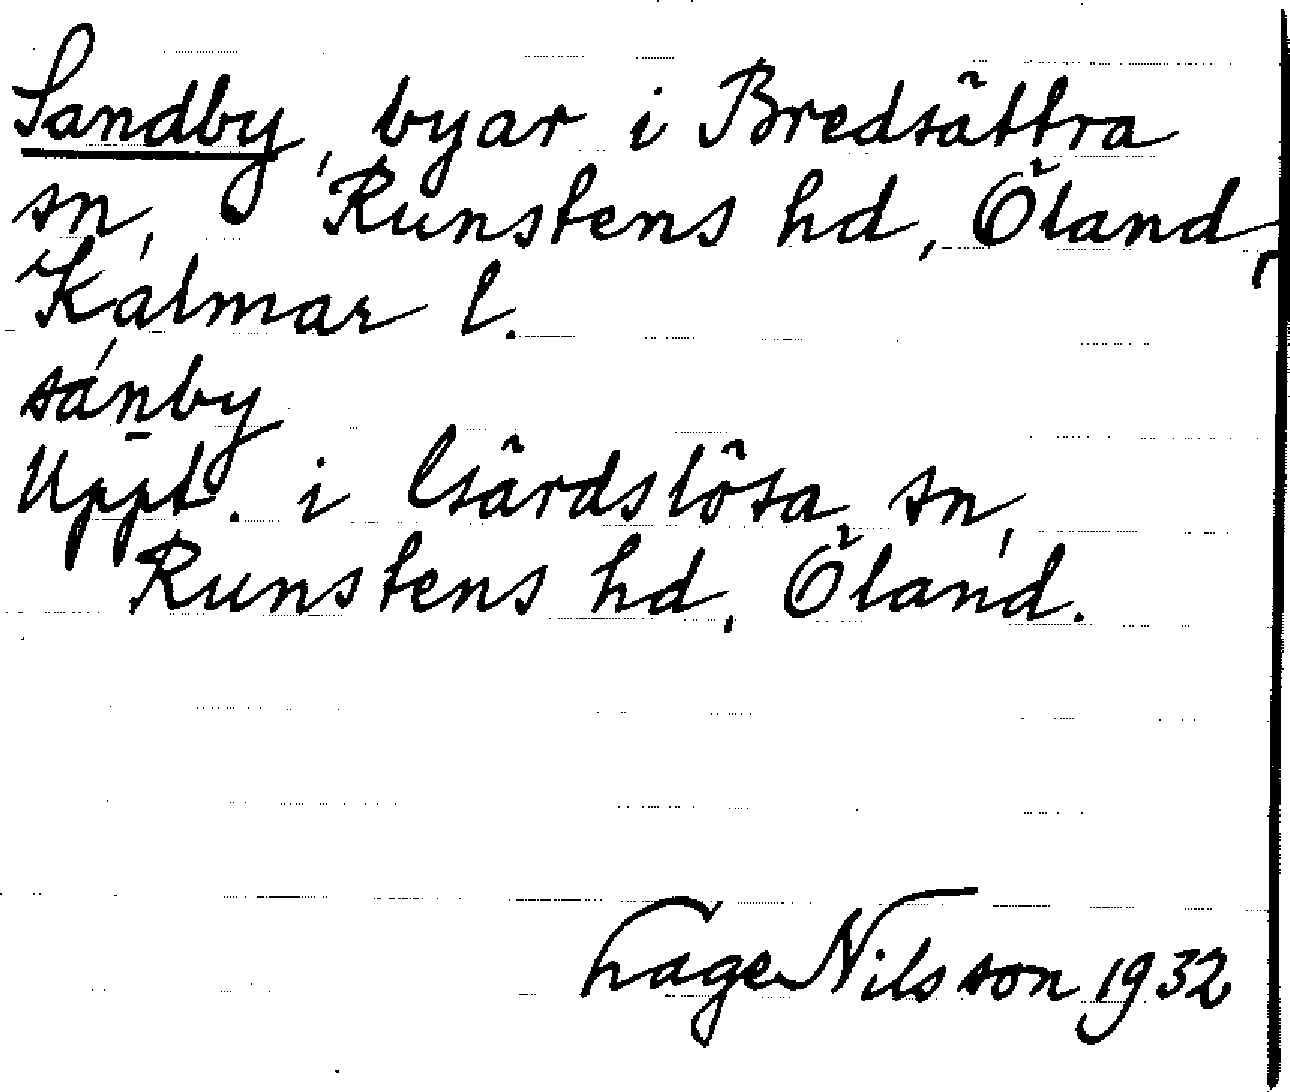 Sandby, byar i Bredsättra
sn, Runstens hd, Öland,
Kalmar l.
sánby
Uppt. i Gärdslösa sn,
Runstens hd, Öland.
Lage Nilsson 1932